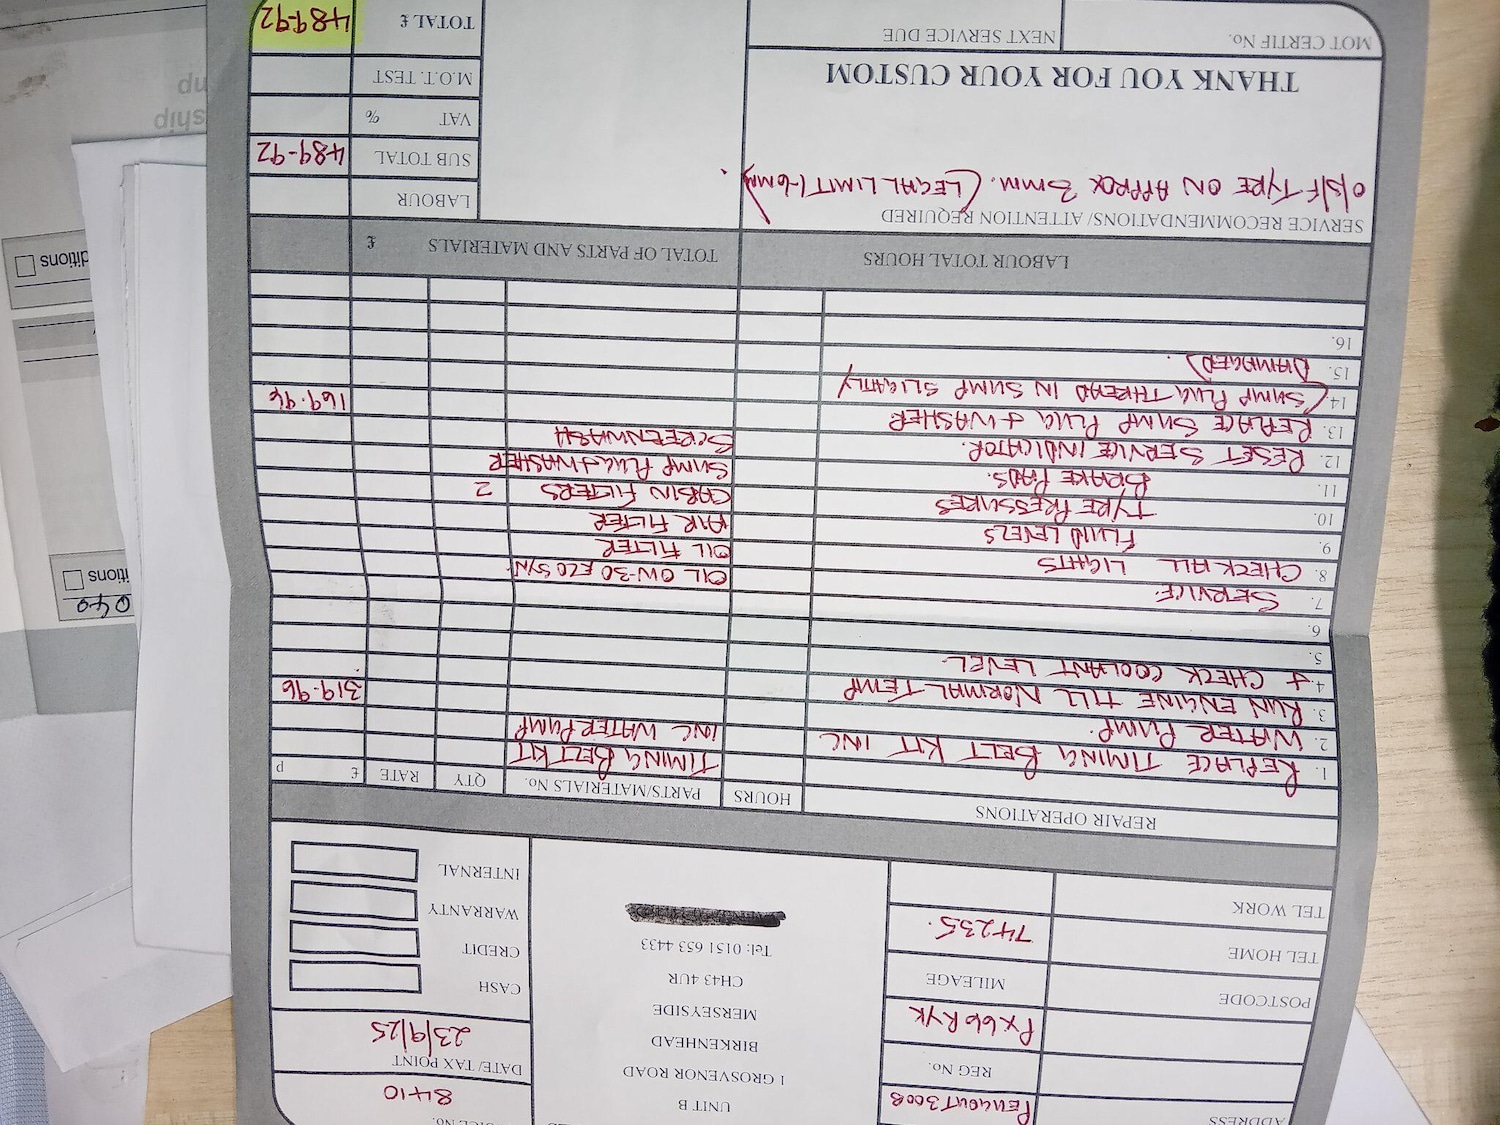 ADDRESS
PEUGOUT 3008
UNIT B
1 GROSVENOR ROAD
BIRKENHEAD
MERSEYSIDE
CH43 4UR
Tel: 0151 653 4433
8410
DATE/ TAX POINT
23/9/25
REG No.
PX66 RYK
POSTCODE
MILEAGE
74235.
TEL HOME
TEL WORK
CASH
CREDIT
WARRANTY
INTERNAL
REPAIR OPERATIONS
HOURS
PARTS/MATERIALS No.
QTY
RATE
£ p
1. REPLACE TIMING BELT KIT INC
2. WATER PUMP.
3. RUN ENGINE TILL NORMAL TEMP
4. + CHECK COOLANT LEVEL
5.
6.
7. SERVICE
8. CHECK ALL LIGHTS
9. FLUID LEVELS
10. TYRE PRESSURES
11. BRAKE PADS.
12. RESET SERVICE INDICATOR.
13. REPLACE SUMP PLUG + WASHER
14. (SUMP PLUG THREAD IN SUMP SLIGHTLY
15. DAMAGED).
16.
TIMING BELT KIT
INC WATER PUMP
319-96
OIL 0W-30 ECO SYN
OIL FILTER
AIR FILTER
CABIN FILTERS 2
SUMP PLUG + WASHER
SCREENWASH
169-96
LABOUR TOTAL HOURS
TOTAL OF PARTS AND MATERIALS £
SERVICE RECOMMENDATIONS/ ATTENTION REQUIRED
O/S/F TYRE ON APPROX 3mm. (LEGAL LIMIT 1-6mm).
LABOUR
SUB TOTAL 489-92
VAT %
M.O.T. TEST
TOTAL £ 489-92
THANK YOU FOR YOUR CUSTOM
MOT CERTIF No.
NEXT SERVICE DUE
040
ditions
ditions